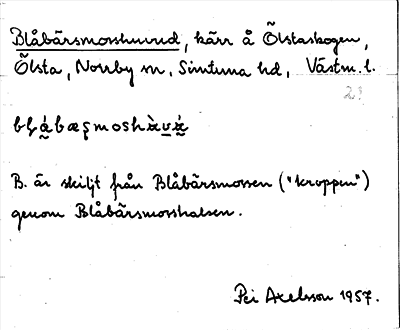 Blåbärsmosshuvud, kärr å Ölstaskogen,
Ölsta, Norrby sn, Simtuna hd, Västm. l.
B. är skiljt från Blåbärsmossen ("kroppen")
genom Blåbärsmosshalsen.
Pei Axelsson 1957.